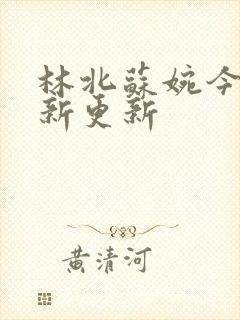 林北蘇婉今
新更新
黄清河